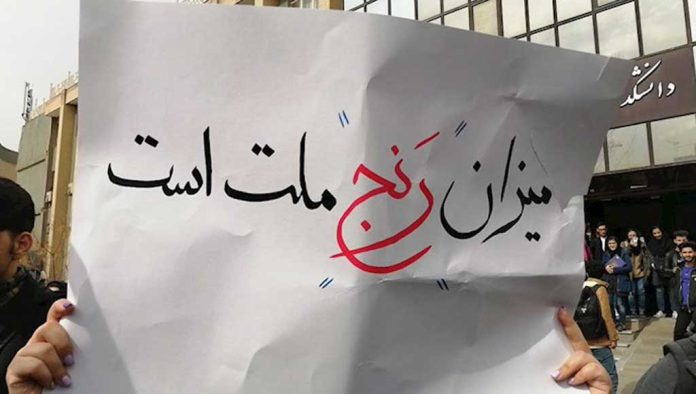 دانشکد
میزان "رَنج" ملت است